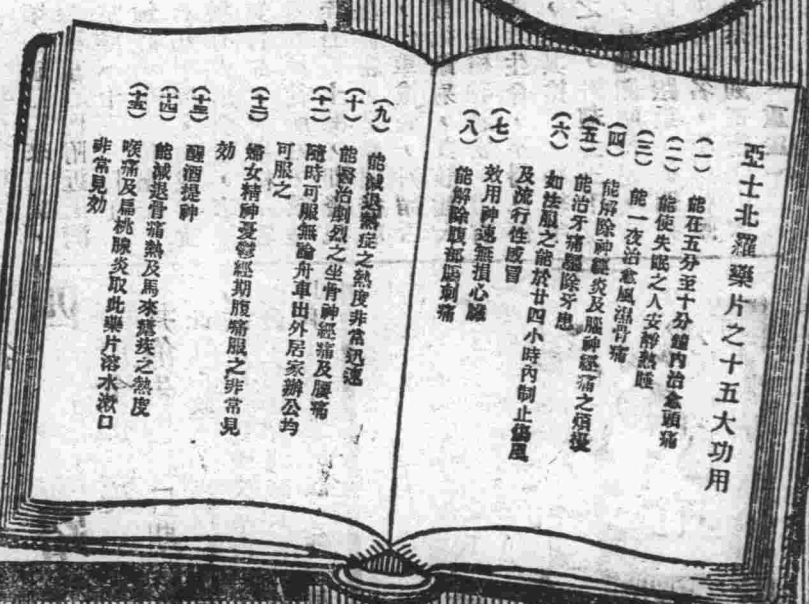 亞士北羅藥片之十五大功用
(一) 能在五分至十分鐘內治愈頭痛
(二) 能使失眠之人安靜熟睡
(三) 能一夜治愈風濕骨痛
(四) 能解除神經炎及腦神經痛之煩擾
(五) 能治牙痛驅除牙患
(六) 如法服之能於廿四小時內制止傷風
及流行性感冒
(七) 效用神速無損心臟
(八) 能解除腹部刺痛
(九) 能減退熱症之熱度非常迅速
(十) 能醫治劇烈之坐骨神經痛及腰痛
(十一) 隨時可服無論舟車出外居家辦公均
可服之
(十二) 婦女精神憂鬱經期腹痛服之非常見
効
(十三) 醒酒提神
(十四) 能減退骨痛熱及馬來瘧疾之熱度
(十五) 喉痛及扁桃腺炎取此藥片溶水漱口
非常見効